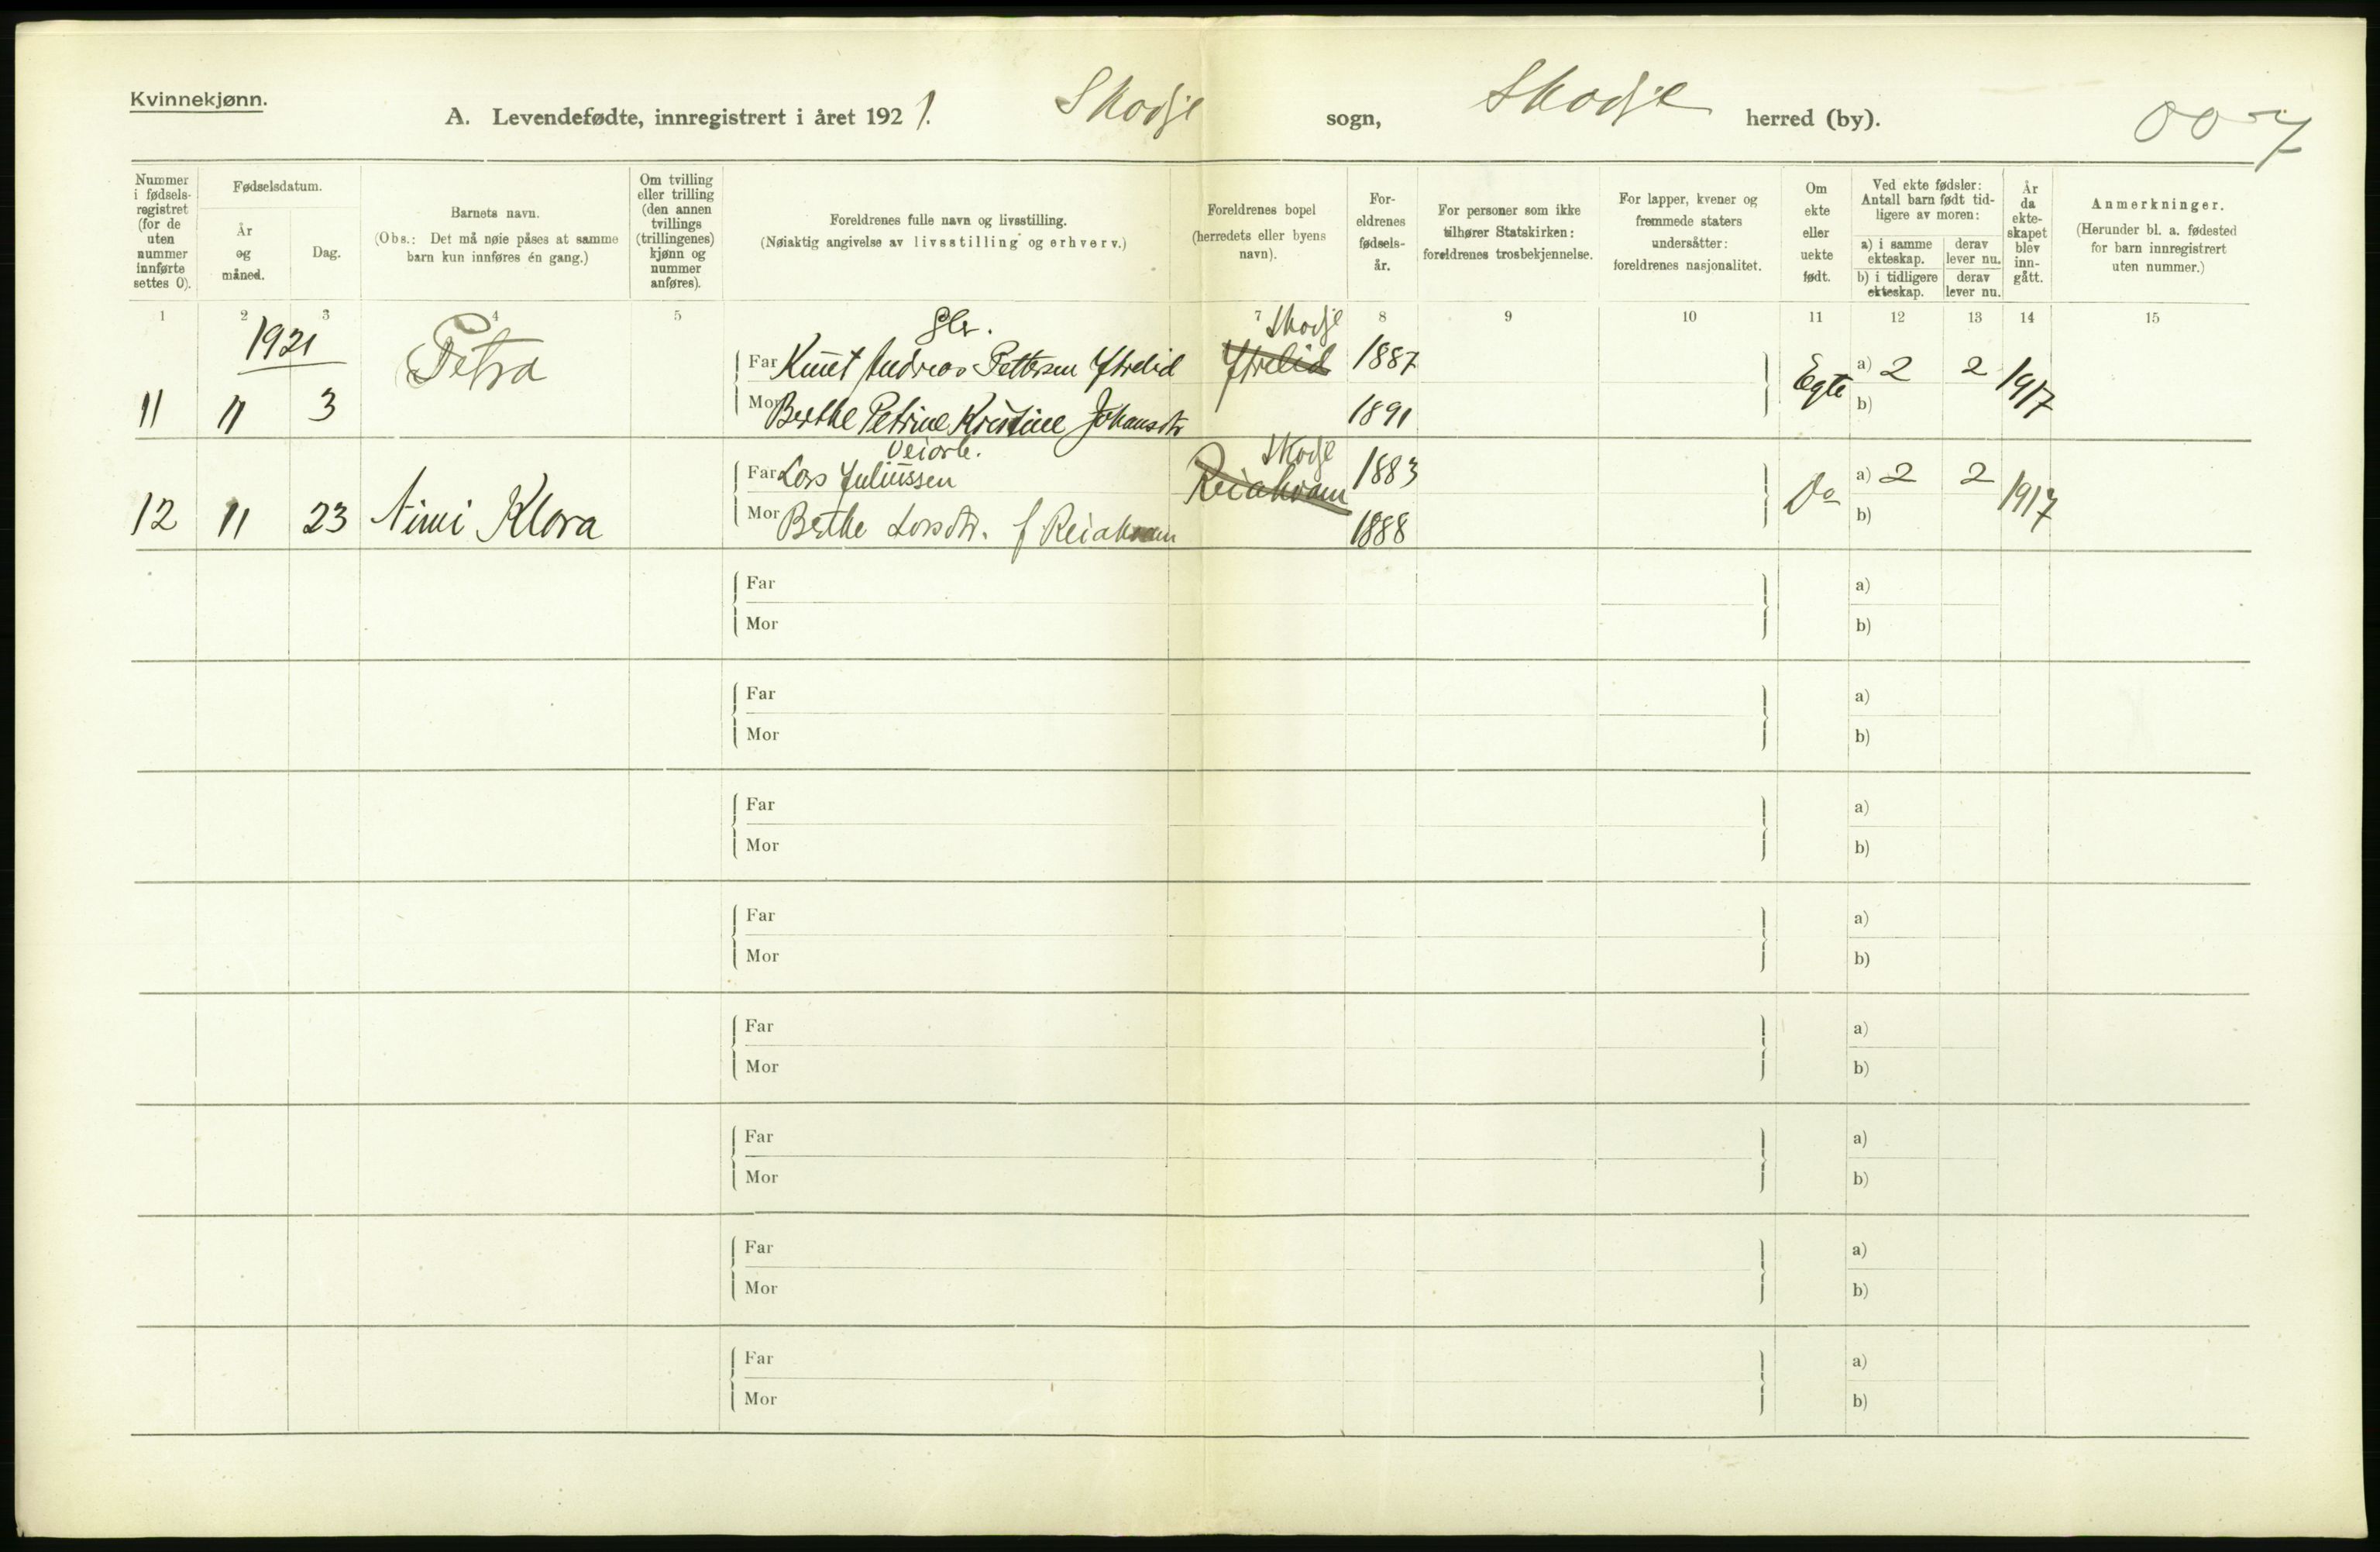 Kvinnekjønn.
A. Levendefødte, innregistrert i året 1921. Skodje sogn, Skodje herred (by).
007
Nummer i fødsels-registret (for de uten nummer innførte settes 0).
Fødselsdatum.
År og måned.
Dag.
Barnets navn.
(Obs.: Det må nøie påses at samme barn kun innføres én gang.)
Om tvilling eller trilling (den annen tvillings (trillingenes) kjønn og nummer anføres).
Foreldrenes fulle navn og livsstilling.
(Nøiaktig angivelse av livsstilling og erhverv.)
Foreldrenes bopel (herredets eller byens navn).
For-eldrenes fødsels-år.
For personer som ikke tilhører Statskirken: foreldrenes trosbekjennelse.
For lapper, kvener og fremmede staters undersåtter: foreldrenes nasjonalitet.
Om ekte eller uekte født.
Ved ekte fødsler: Antall barn født tid-ligere av moren:
a) i samme ekteskap.
derav lever nu.
b) i tidligere ekteskap.
derav lever nu.
År da ekte-skapet blev inn-gått.
Anmerkninger.
(Herunder bl. a. fødested for barn innregistrert uten nummer.)
1 2 3 4 5 7 8 9 10 11 12 13 14 15
1921
Petra
Far Knut Andreas Pettersen Ytrelid Skodje Ytrelid 1887 Egte a) 2 2 1917
11 11 3 Mor Berthe Petrine Kristine Johansdtr 1891 b)
Veiarb.
Far Lars Juliussen Skodje Reiakvam 1883 Do a) 2 2 1917
12 11 23 Nimi Klara Mor Berthe Larsdtr. f Reiakvam 1888 b)
Far a)
Mor b)
Far a)
Mor b)
Far a)
Mor b)
Far a)
Mor b)
Far a)
Mor b)
Far a)
Mor b)
Far a)
Mor b)
Far a)
Mor b)